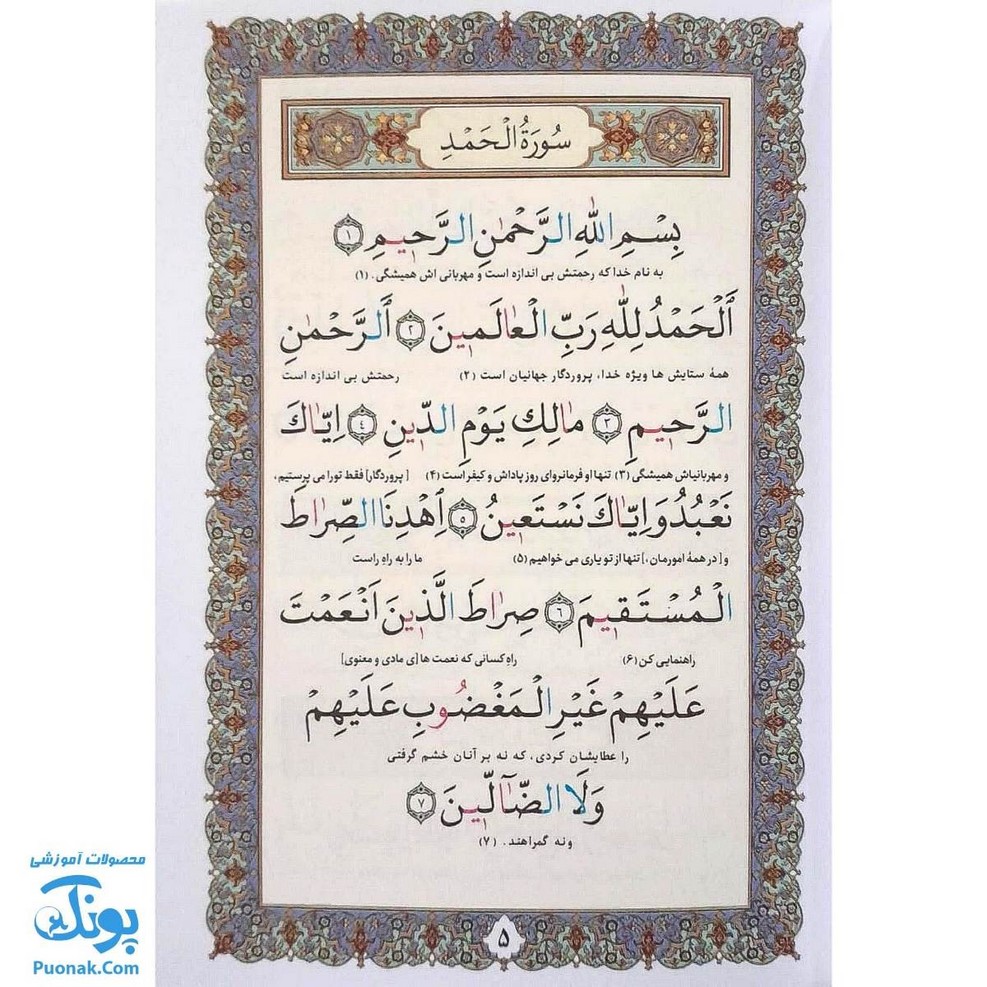 سُورَةُ الْحَمْدِ
بِسْمِ اللّٰهِ الرَّحْمٰنِ الرَّحيمِ ﴿١﴾
به نام خدا که رحمتش بی اندازه است و مهربانی اش همیشگی. (۱)
اَلْحَمْدُ لِلّٰهِ رَبِّ الْعٰالَمينَ ﴿٢﴾ اَلرَّحْمٰنِ
همهٔ ستایش ها ویژه خدا، پروردگار جهانیان است (۲) رحمتش بی اندازه است
الرَّحيمِ ﴿٣﴾ مٰالِكِ يَوْمِ الدّينِ ﴿٤﴾ اِيّٰاكَ
و مهربانیاش همیشگی (۳) تنها او فرمانروای روز پاداش و کیفر است (۴) [پروردگار] فقط تورا می پرستیم،
نَعْبُدُ وَ اِيّٰاكَ نَسْتَعينُ ﴿٥﴾ اِهْدِنَا الصِّرٰاطَ
و [در همهٔ امورمان،] تنها از تو یاری می خواهیم (۵) ما را به راه راست
الْمُسْتَقيمَ ﴿٦﴾ صِرٰاطَ الَّذينَ اَنْعَمْتَ
راهنمایی کن (۶) راه کسانی که نعمت ها [ی مادی و معنوی]
عَلَيْهِمْ غَيْرِ الْمَغْضُوبِ عَلَيْهِمْ
را عطایشان کردی، که نه بر آنان خشم گرفتی
وَلَا الضّٰٓالّينَ ﴿٧﴾
ونه گمراهند. (۷)
۵
محصولات آموزشی
پونک
Puonak.Com